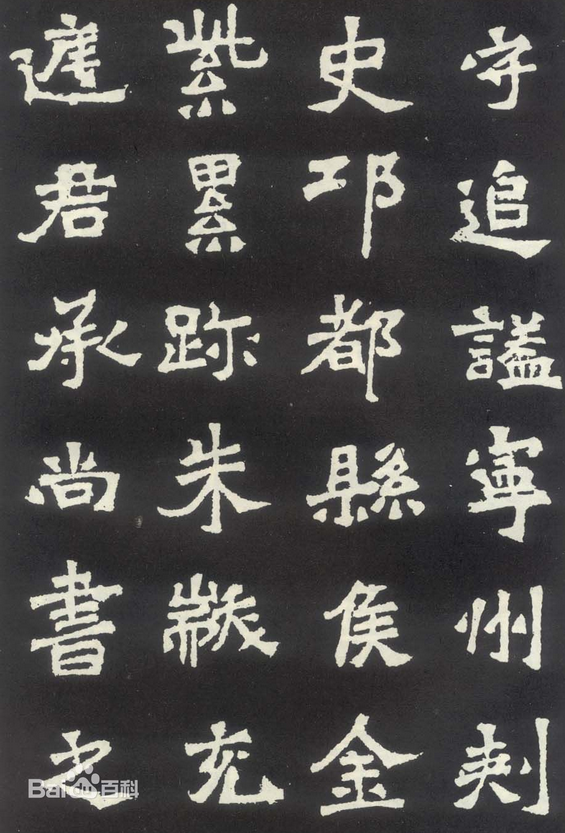 守追謚寧州刾
史邛都縣侯金
紫累跡朱黻充
庭君承尚書之
Baidu百科